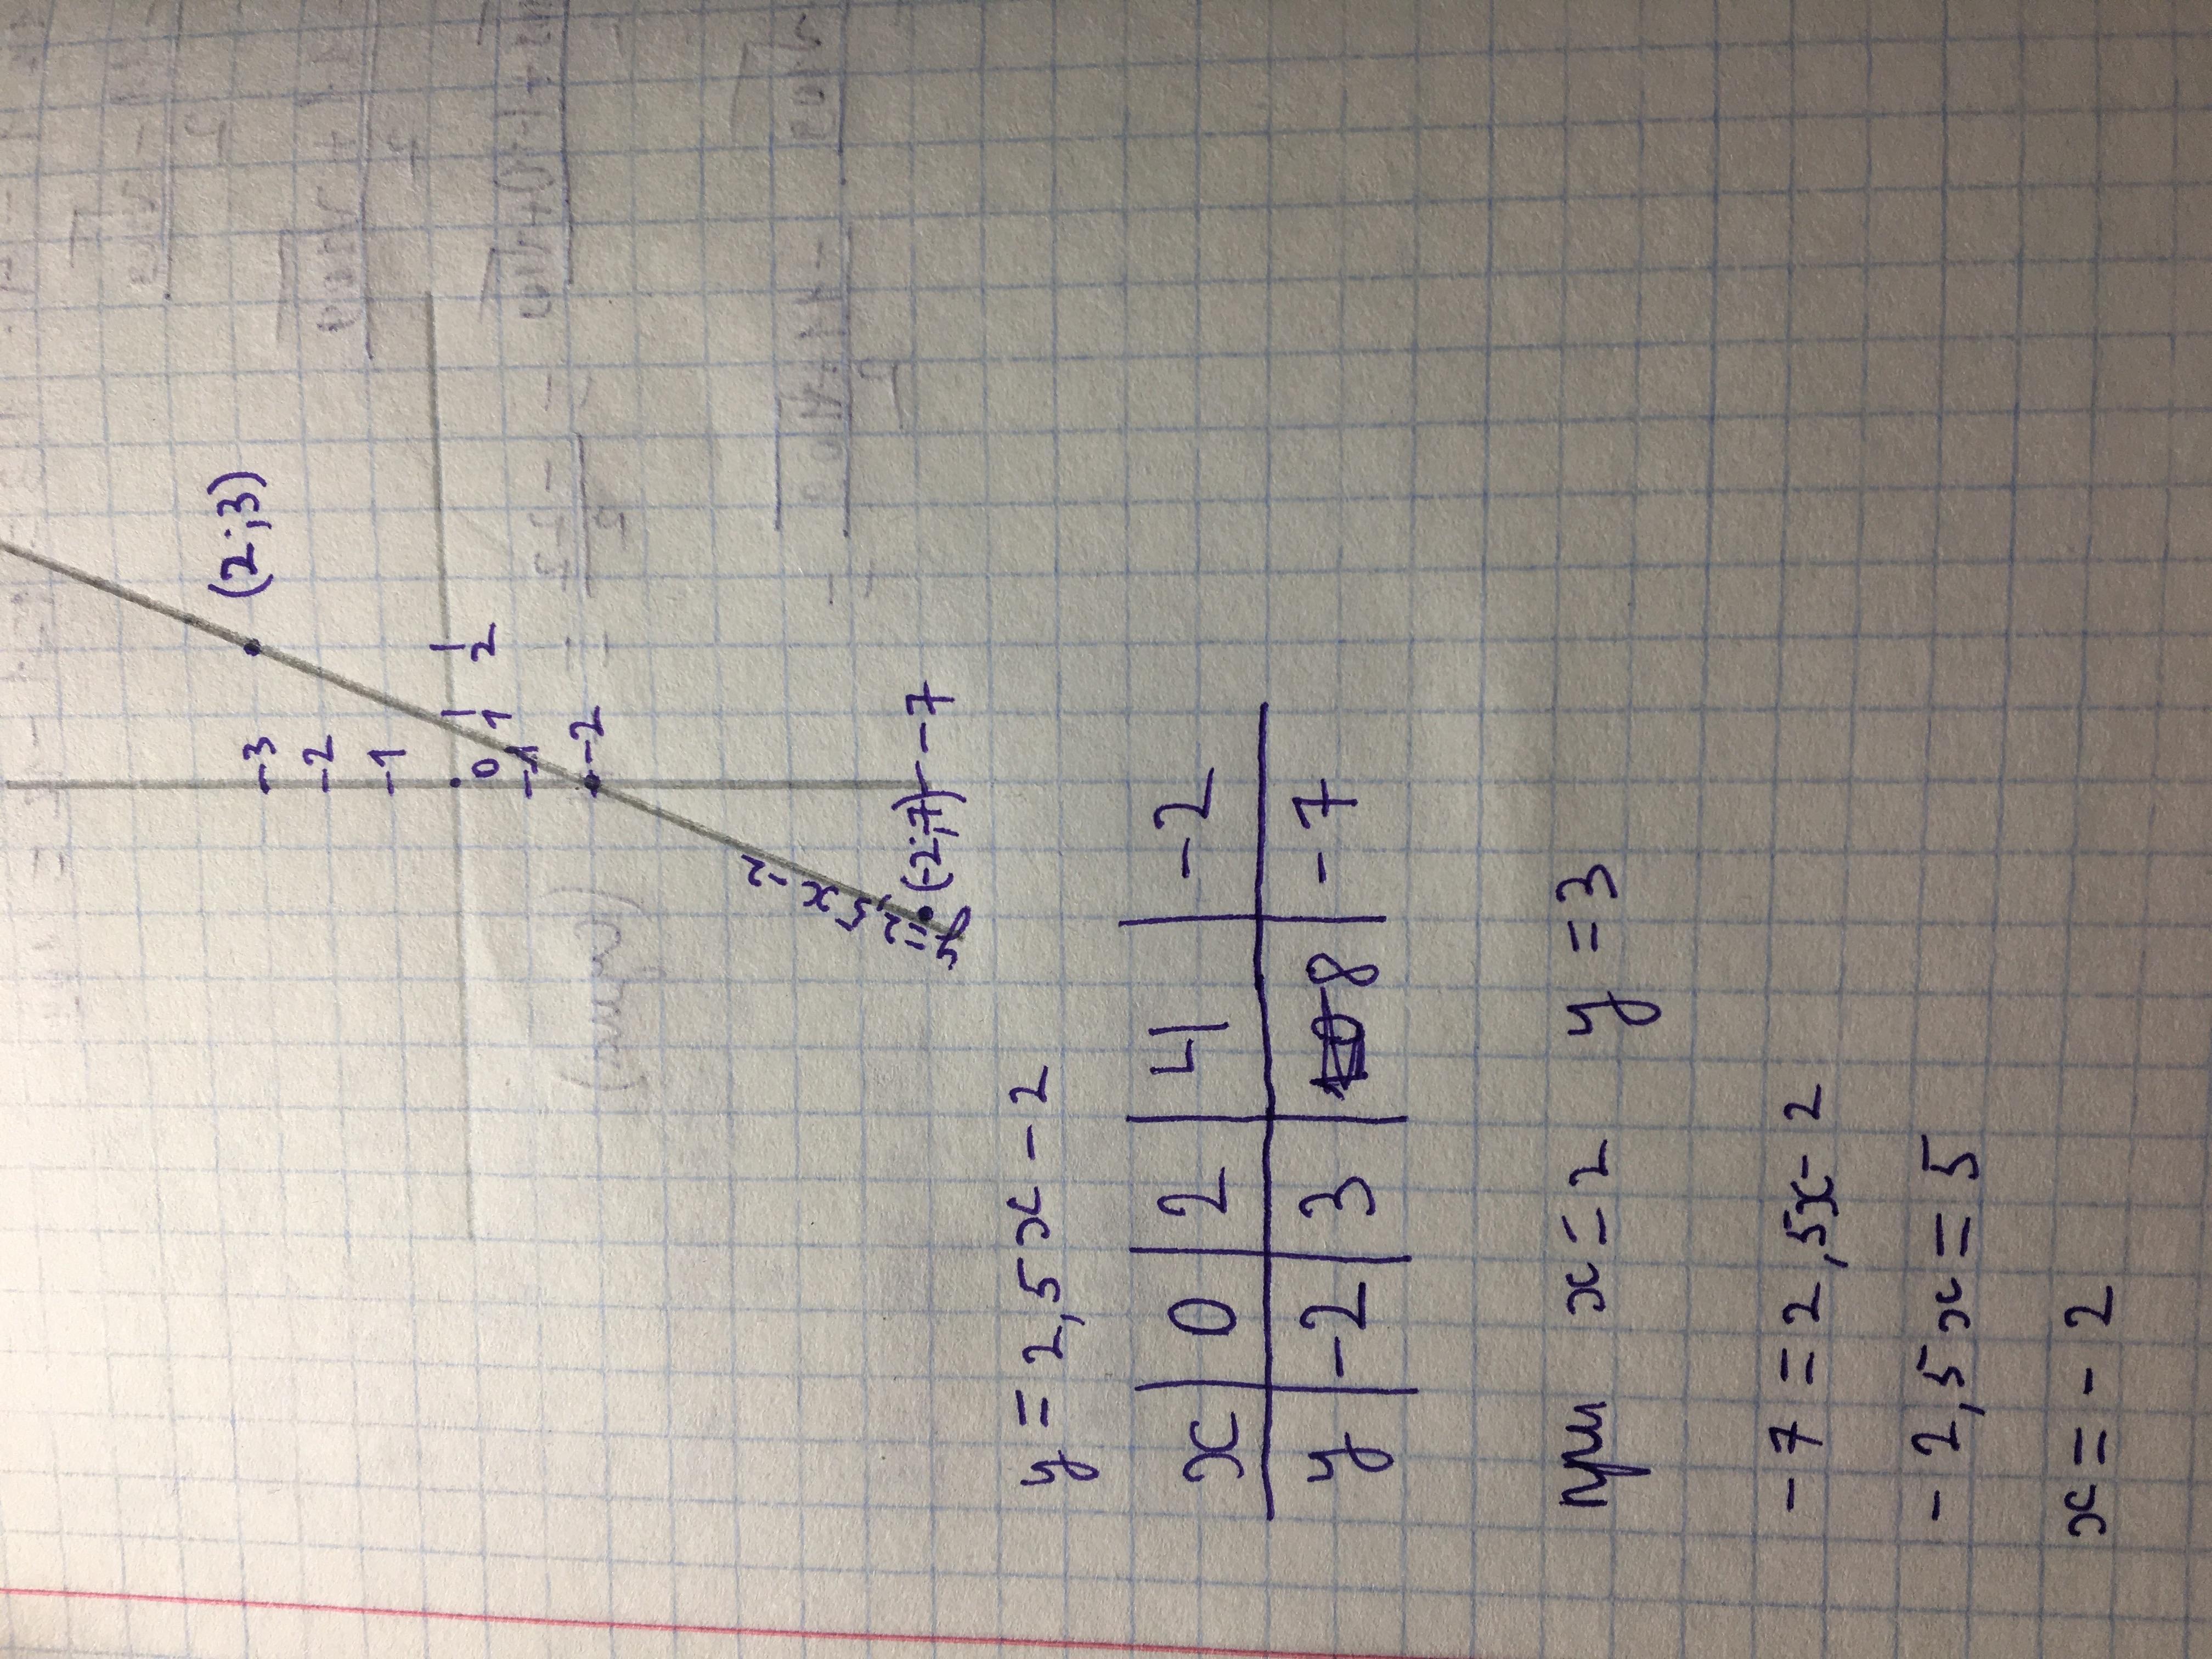 3 (2;3)
2
1
0 1 2
-1
-2
y=2,5x-2
(-2;-7) -7
y = 2,5x - 2
x 0 2 4 -2
y -2 3 8 -7
при x = 2 y = 3
-7 = 2,5x - 2
-2,5x = 5
x = -2